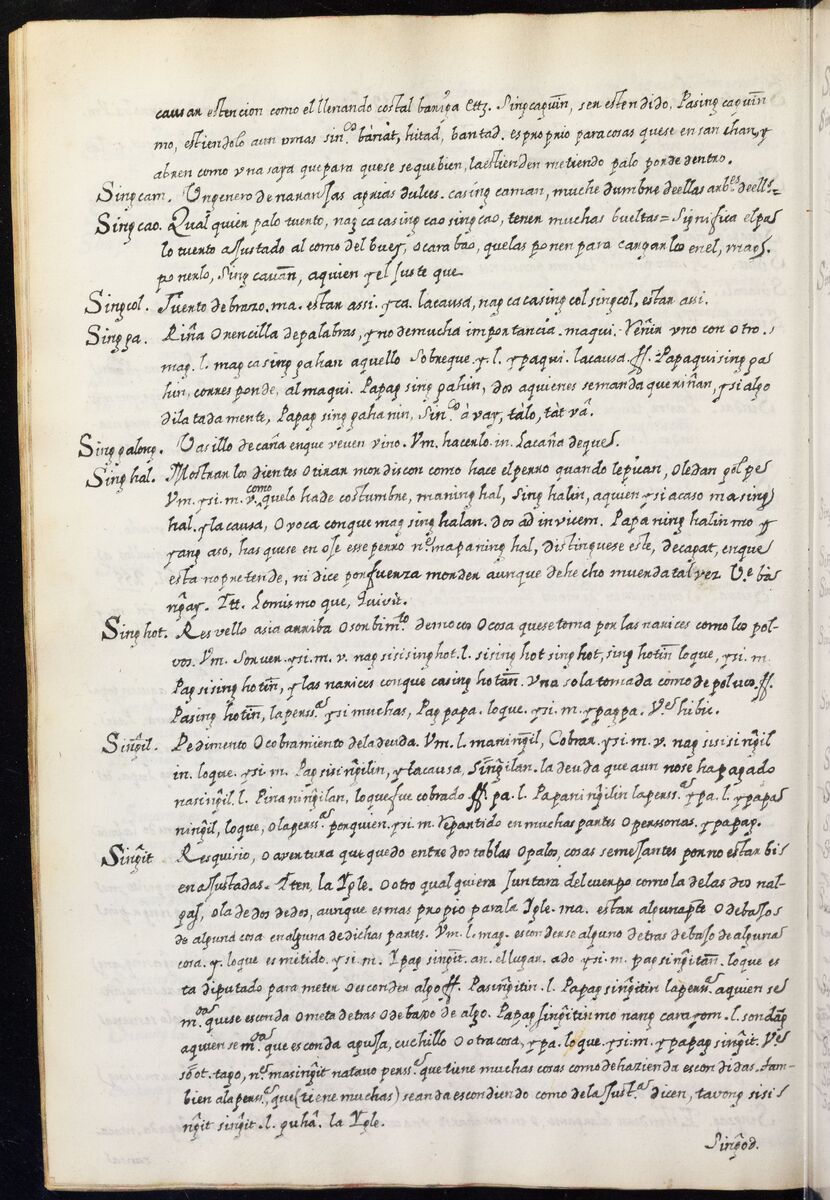 causar estencion como el llenando costal bariga ettz. Singcaguin, ser estendido, Pasing caguin
mo, estiendolo aun vmas sin.co bàriàt, hitad, bantad. es proprio para cosas quese ensanchan, y
abren como vna saya que para quese seque bien, la estienden metiendo palo por de dentro.
Singcam. Un genero de naransas agrias dulces. casing caman, muche dumbre de ellas
Singcao. Qualquier palo tuerto, nag ca casing cao singcao, tener muchas bueltas = Significa el pa
lo tuerto assustado al como del buey, o cara bao, quelas ponen para cargarlos en el, mag.
ponerlo, Sing cauan, aquien y el suste que
Singcol. Tuerto de brazo. ma. estar assi. yca. la causa, nag ca casing col singcol, estar assi.
Singga. Riña o rencilla de palabras, y no de mucha importancia. maqui. Veñir vno con otro.
mag. l. mag ca sing gahan aquello sobreque. y. l. ypaqui. la causa. ff. Papaquising ga
hin, corresponde, al maqui. Papag sing gahin, dos aquienes se manda que riñan, y si algo
dilatadamente, Papag sing gaha nin, Sin.co à vay, tàlo, tàt vâ.
Singgalong. Vasillo de caña enque veuen vino. Vm. hacerlo. in. la caña de que.
Sing hal. Mostrar los dientes o tirar mordiscon como hace el perro quando le pican, o le dan golpes
Vm. y si. m. v. como quelo hade costumbre, maning hal, Sing halin, aquien y si acaso masing
hal. y la causa, o voca conque mag sing halan. dos ad invicem. Papaning halin mo y
yang aso, has quese enose esse perro n.e mapaning hal, distinguese este, de cagat, enque
esta no pretende, ni dice por fuerza morder aunque de hecho muerda tal vez V.e bàn
gay. Itt. Lo mismo que, Quivit.
Sing hot. Resvello asia arriba o sorbim.to de mocos o cosa quese toma por las narices como los pol-
vos. Vm. sorver. y si. m. v. nag sisinghot. l. sising hot sing hot, sing hotin loque, y si. m.
Pag sising hotin, y las narices conque casing hotan. vna sola tomada como de poluos. ff.
Pasing hotin, la perss.a y si muchas, Pag papa. loque. y si. m. ypagpa. V.e hibic.
Singil. Pedimento o cobramiento de la deuda. Vm. l. maningil, Cobrar. y si. m. v. nag sisi singil
in. loque. y si. m. Pag sisingilin, y la causa, Singilan. la deuda que aun no se ha pagado
nasingil. l. Pina ningilan, loque fue cobrado ff. pa. l. Papaningilin la perss.a ypa. l. ypapa
ningil, loque, o la perss.a por quien. y si. m. Repartido en muchas partes o personas. ypapag.
Singit Resquisio, o aventura que quedo entre dos tablas o palos, cosas semesantes por no estar bis
en assustadas. Iten, la Yple. o otro qualquiera suntura del cuerpo como la de las dos nal-
gas, o la de dos dedos, aunque es mas propio para la Yple. ma. estar alguna p.te o debasos
de alguna cosa en alguna de dichas partes. Vm. l. mag. esconderse alguno detras debaso de alguna
cosa. y. loque es metido. y si. m. Ipag singit. an. el lugar. ado y si. m. pag singitan. loque es
ta diputado para meter o esconder algo ff. Pasingitin. l. Papag singitin la perss.a aquien se
m.da quese esconda o meta detras o debaxo de algo. Papag singitin mo nang carayom. l. sondang
aquien se m.da que esconda agusa, cuchillo o otra cosa, ypa. loque. y si. m. ypapag singit. V.e
soot. tago, n.e masingit na tavo perss.a que tiene muchas cosas como de hazienda escondidas. tam-
bien ala perss.a que (tiene muchas) se anda escondiendo como de la Just.a dicen, tavong sisi
ngit singit. l. puhâ. la Yple.
Singod.